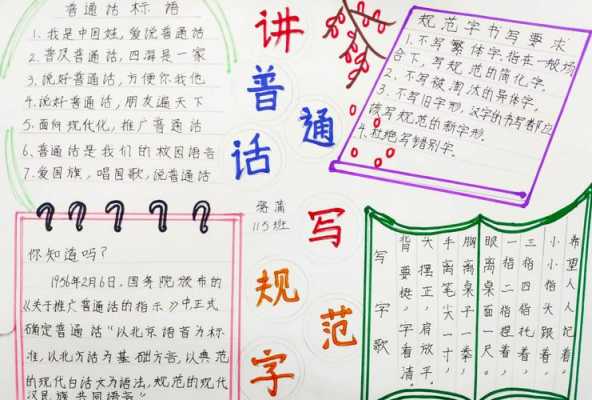 普通话标语
1.我是中国娃，爱说普通话
2.普及普通话，四海是一家
3.说好普通话，方便你我他
4.说好普通话，朋友遍天下
5.面向现代化，推广普通话
6.普通话是我们的校园语言
7.爱国旗，唱国歌，说普通话
讲普通话
115班
写规范字
规范字书写要求
1.不写繁体字.指在一般场
合下，写规范的简化字.
2.不写被淘汰的异体字.
3.不写旧字形，汉字的书写都应
该写规范的新字形.
4.杜绝写错别字.
你知道吗？
1956年2月6日，国务院颁布的
《关于推广普通话的指示》中正式
确定普通话“以北京语音为标
准，以北方话为基础方言，以典范
的现代白话文为语法，规范的现代
汉民族共同语言”
写字歌
背要挺，字看清
大摆正，肩放平
手离笔大一寸
胸离桌子一拳
眼离桌面一尺
一指二指捏着
三指四指托着
小小指头跟着
希望人人记着